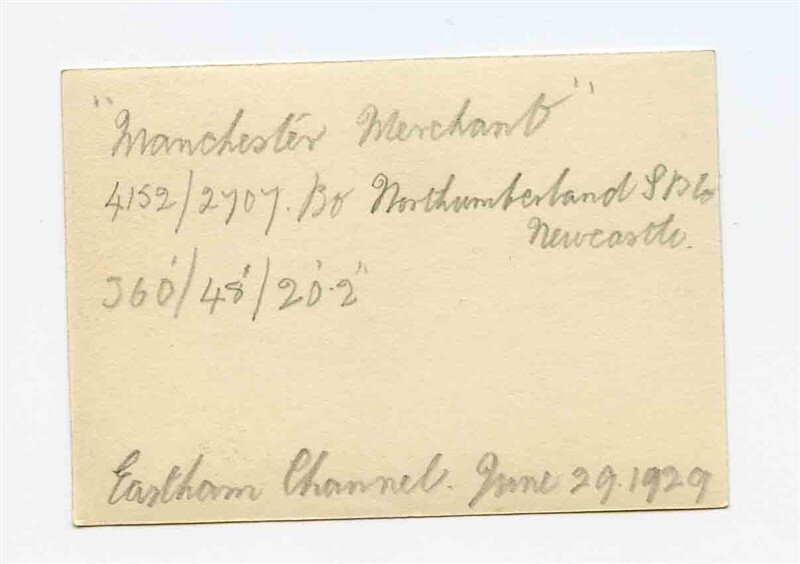 "Manchester Merchant"
4152/2707. Bo Northumberland S B Co
Newcastle.
360'/48'/20'.2"
Eastham Channel. June 29. 1929